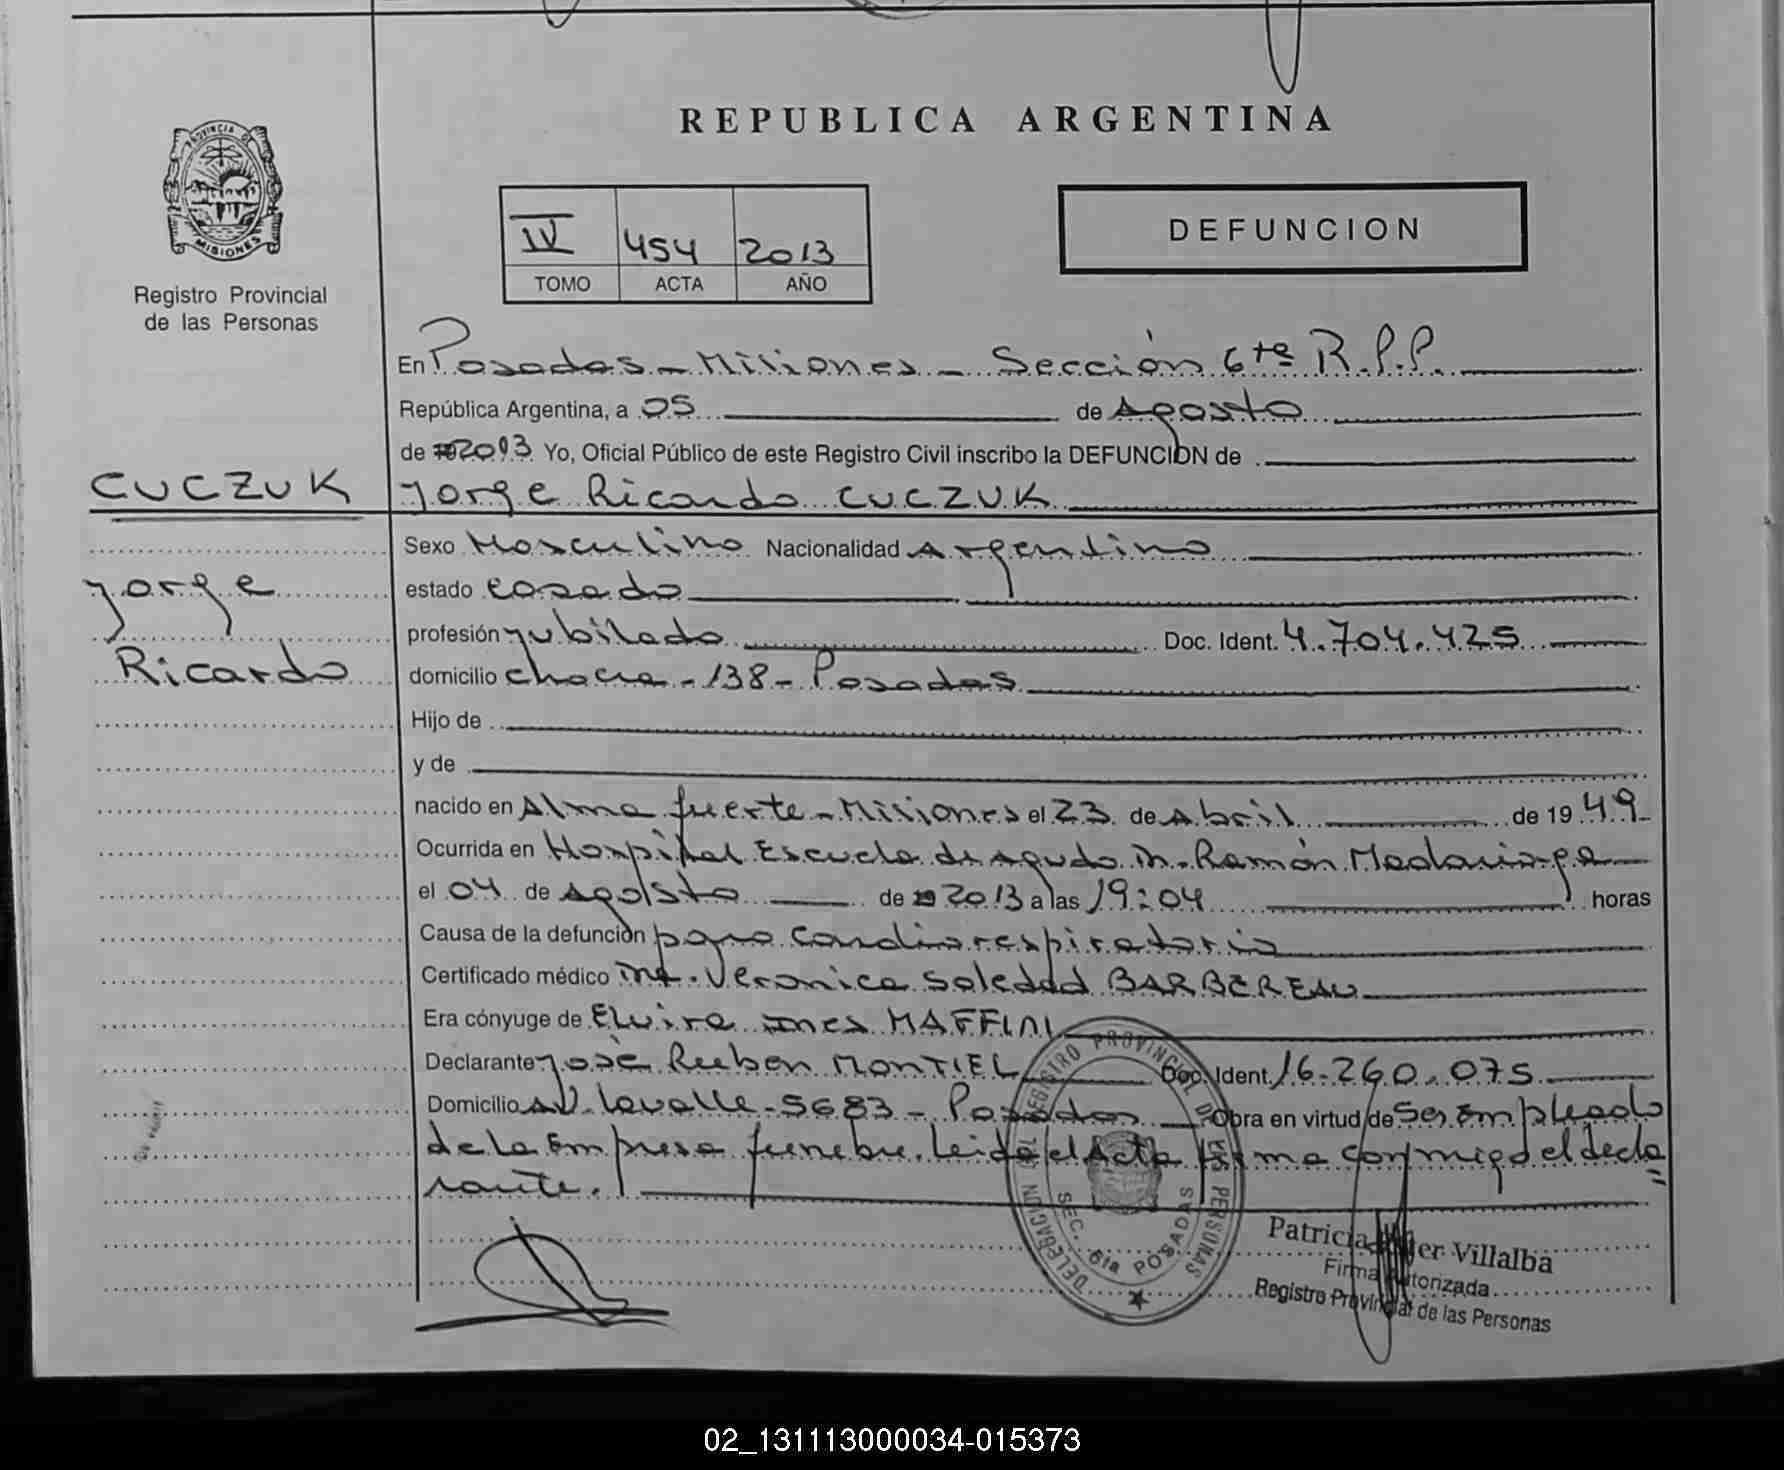 REPUBLICA ARGENTINA
PROVINCIA DE
MISIONES
Registro Provincial
de las Personas
IV 454 2013
TOMO ACTA AÑO
DEFUNCION
En Posadas - Misiones - Sección 6ta R.P.P.
República Argentina, a 05 de Agosto
de 2013 Yo, Oficial Público de este Registro Civil inscribo la DEFUNCION de
CUCZUK
Jorge Ricardo CUCZUK
Jorge
Ricardo
Sexo Masculino Nacionalidad Argentino
estado casado
profesión Jubilado Doc. Ident. 4.704.425
domicilio chacra - 138 - Posadas
Hijo de
y de
nacido en Alma fuerte - Misiones el 23 de Abril de 19 49
Ocurrida en Hospital Escuela de Agudo Dr. Ramón Madariaga
el 04 de Agosto de 2013 a las 19:04 horas
Causa de la defunción paro cardiorespiratorio
Certificado médico Dra. Veronica Soledad BARBEREAU
Era cónyuge de Elvira Ines MAFFINI
Declarante José Ruben MONTIEL Doc. Ident. 16.260.075
Domicilio AV. Lavalle - 5683 - Posadas Obra en virtud de Ser Empleado
de la Empresa funebre. Leida el Acta firma conmigo el decla
rante.
DELEGACION DEL REGISTRO PROVINCIAL DE LAS PERSONAS
SEC. 6ta POSADAS
Patricia Villalba
Firma Autorizada
Registro Provincial de las Personas
02_131113000034-015373